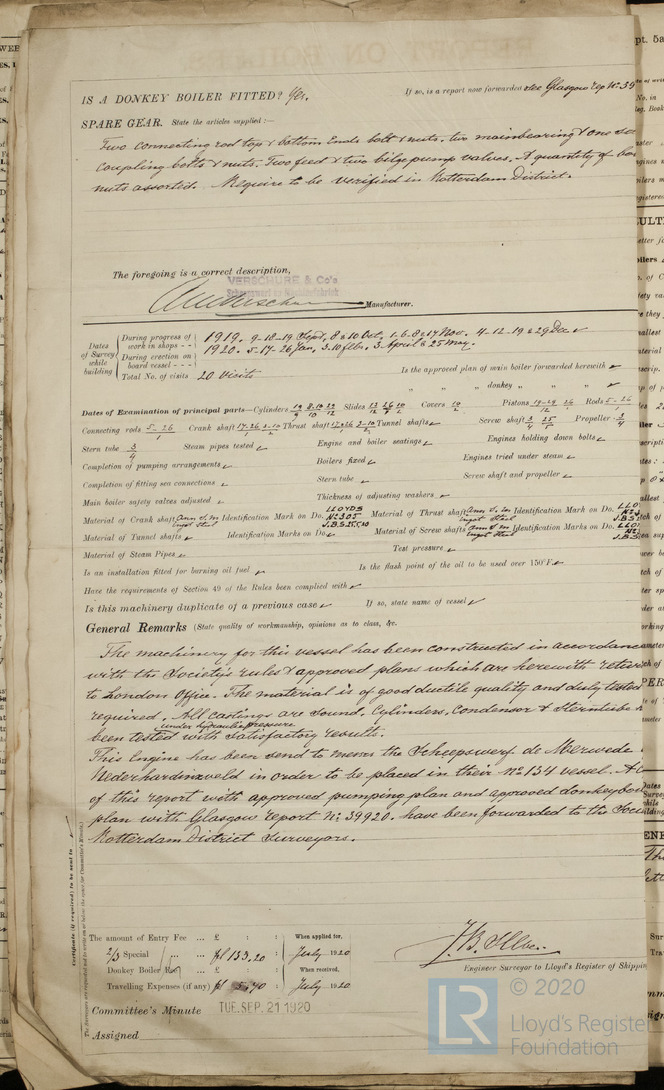 IS A DONKEY BOILER FITTED? Yes. If so, is a report now forwarded see Glasgow rep No 39
SPARE GEAR. State the articles supplied :—
Two connecting rod tops & bottom ends bolt & nuts. two mainbearing & one set
coupling bolts & nuts. Two feed & two bilge pump valves. A quantity of
nuts assorted. Require to be verified in Rotterdam District.
The foregoing is a correct description,
VERSCHURE & Co's
Manufacturer.
Dates of Survey while building
During progress of work in shops - - 1919. 9-10-19 Sept, 8 & 10 Oct, 1-6-8 & 17 Nov. 4-12-19 & 29 Dec
During erection on board vessel - - - 1920. 5-17-26 Jan, 3-10 feb. 3 April & 25 May.
Total No. of visits 20 visits
Is the approved plan of main boiler forwarded herewith
" " " donkey " " "
Dates of Examination of principal parts—Cylinders 19/9 8.10/10 29/12 Slides Covers 10/2 Pistons 19-29/12 26/1 Rods 5-26/1
Connecting rods 5-26/1 Crank shaft 17-26/1 3-10/2 Thrust shaft Tunnel shafts Screw shaft 3/4 25/5 Propeller 3/4
Stern tube 3/4 Steam pipes tested Engine and boiler seatings Engines holding down bolts
Completion of pumping arrangements Boilers fixed Engines tried under steam
Completion of fitting sea connections Stern tube Screw shaft and propeller
Main boiler safety valves adjusted Thickness of adjusting washers
Material of Crank shaft Ann S.M ingot steel Identification Mark on Do. LLOYDS No 305 J.B.S. Material of Thrust shaft Ann S.M ingot steel Identification Marks on Do. LLO
Material of Tunnel shafts Identification Marks on Do. Material of Screw shafts Ann S.M ingot steel Identification Marks on Do. LLO
Material of Steam Pipes Test pressure
Is an installation fitted for burning oil fuel Is the flash point of the oil to be used over 150°F.
Have the requirements of Section 49 of the Rules been complied with
Is this machinery duplicate of a previous case If so, state name of vessel
General Remarks (State quality of workmanship, opinions as to class, &c.
The machinery for this vessel has been constructed in accordance
with the Society's rules & approved plans which are herewith
to London Office. The material is of good ductile quality and duly tested
required. All castings are sound. Cylinders, Condensor & Sterntube
been tested under hydraulic pressure with satisfactory results.
This Engine has been send to messrs the Scheepswerf de Merwede
Nederhardinxveld in order to be placed in their No 134 vessel. A
of this report with approved pumping plan and approved donkey
plan with Glasgow report No 39920. have been forwarded to the
Rotterdam District Surveyors.
Certificate (if required) to be sent to
The amount of Entry Fee ... £ : : When applied for,
2/3 Special ... ... fl 133.20 July 1920
Donkey Boiler Fee ... £ : : When received,
Travelling Expenses (if any) fl July 1920
Engineer Surveyor to Lloyd's Register of Shippin
Committee's Minute TUE. SEP. 21 1920
Assigned
LR © 2020
Lloyd's Register
Foundation